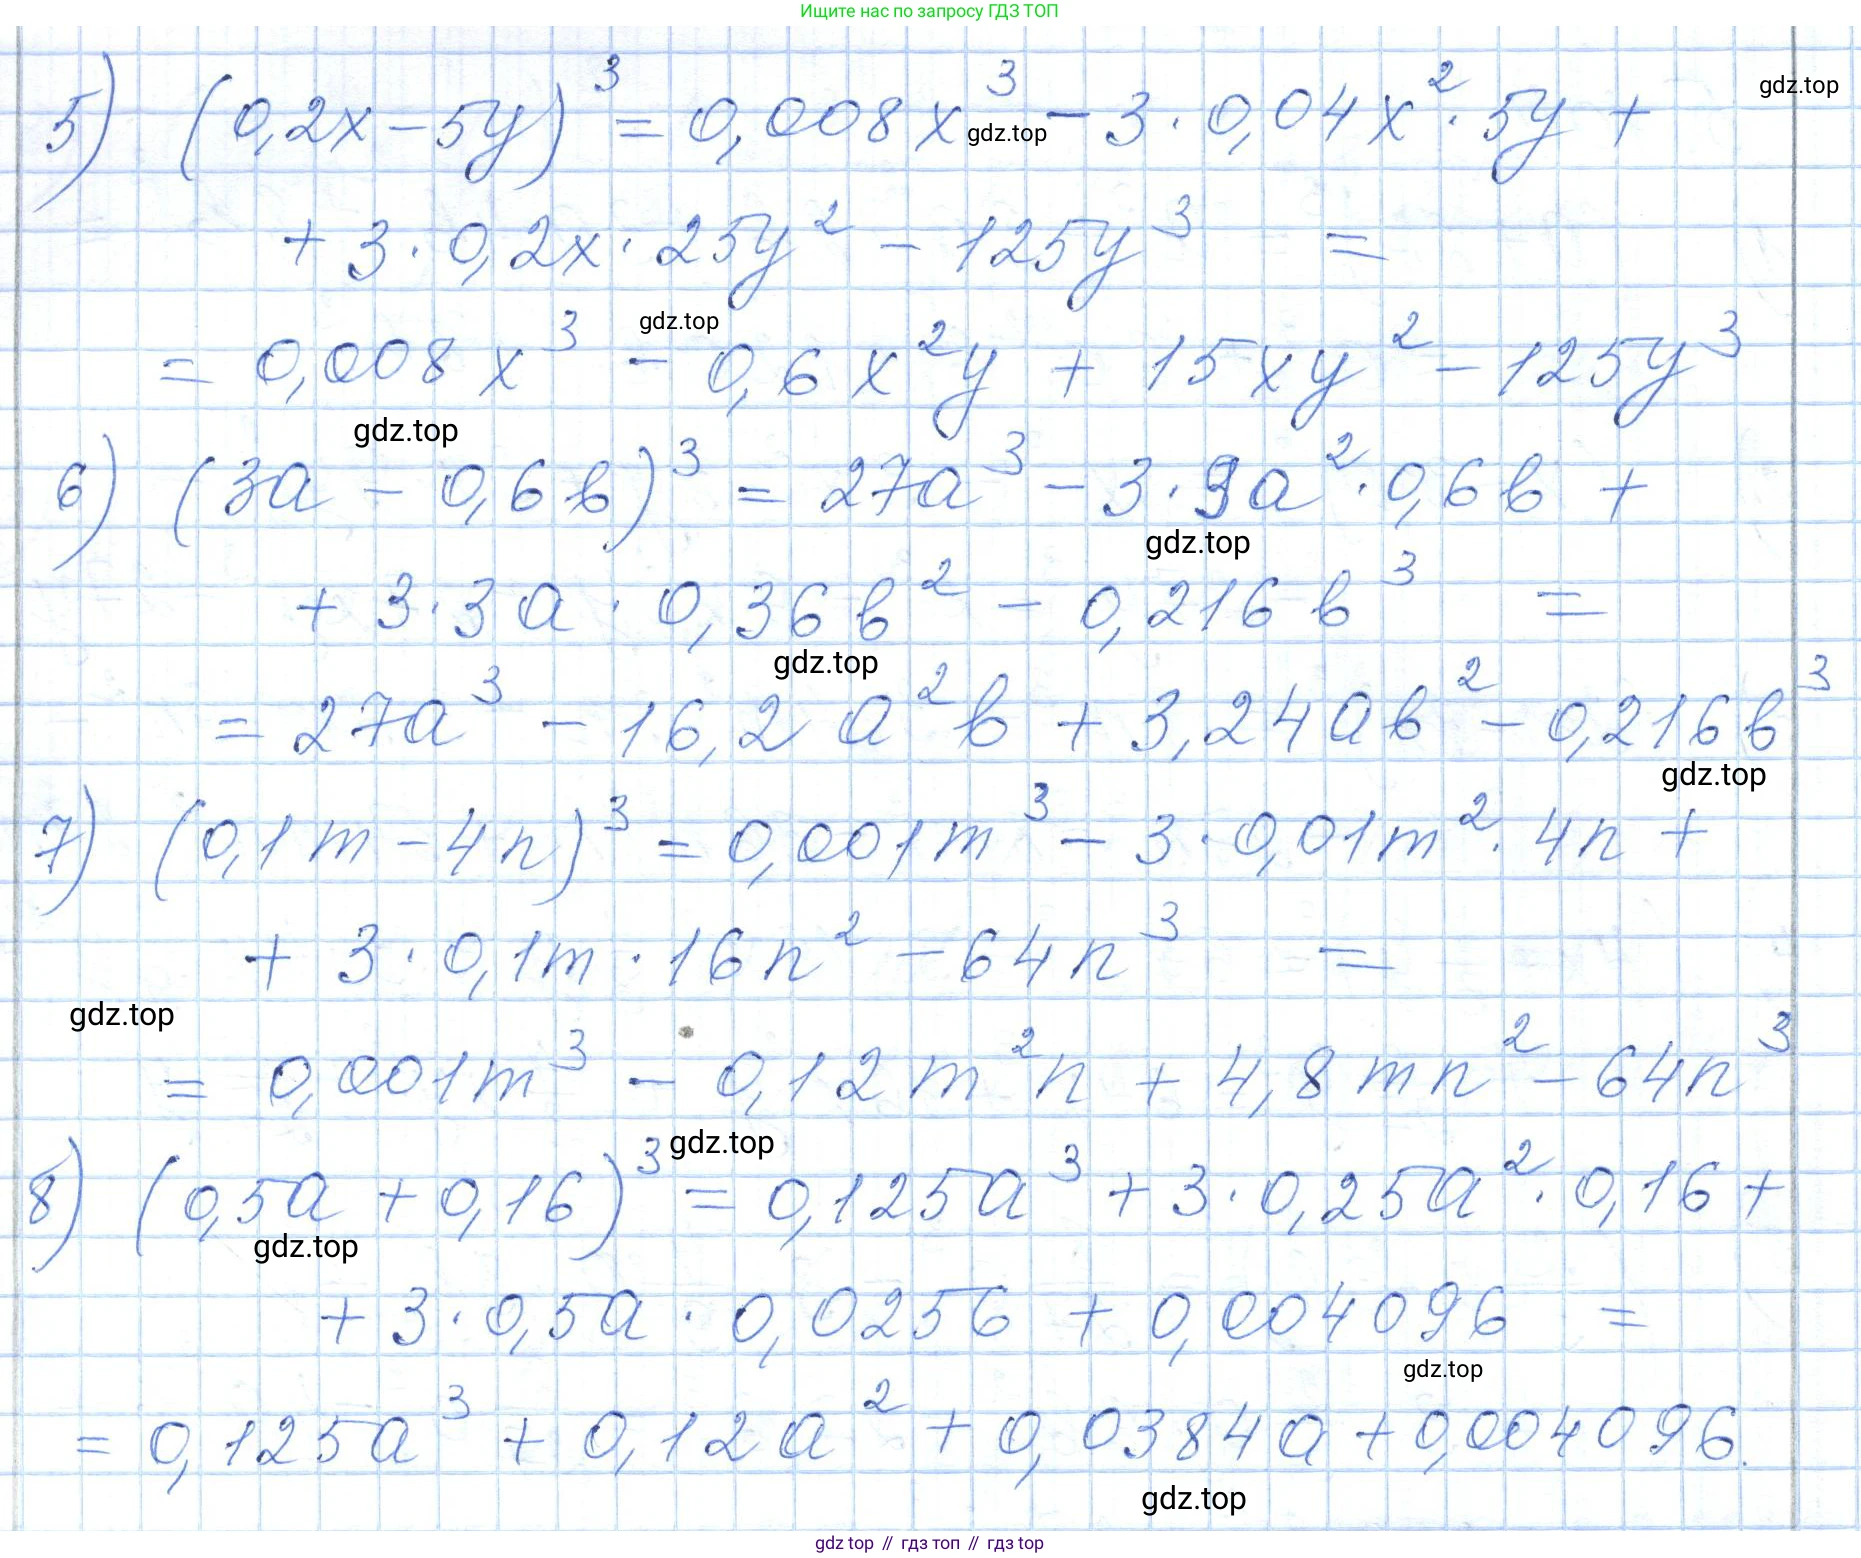 Ищите нас по запросу ГДЗ ТОП
gdz.top
5) (0,2x - 5y)³ = 0,008x³ - 3 · 0,04x² · 5y +
gdz.top
+ 3 · 0,2x · 25y² - 125y³ =
gdz.top
= 0,008x³ - 0,6x²y + 15xy² - 125y³
gdz.top
6) (3a - 0,6b)³ = 27a³ - 3 · 9a² · 0,6b +
gdz.top
+ 3 · 3a · 0,36b² - 0,216b³ =
gdz.top
= 27a³ - 16,2a²b + 3,24ab² - 0,216b³
gdz.top
7) (0,1m - 4n)³ = 0,001m³ - 3 · 0,01m² · 4n +
+ 3 · 0,1m · 16n² - 64n³ =
gdz.top
= 0,001m³ - 0,12m²n + 4,8mn² - 64n³
gdz.top
8) (0,5a + 0,16)³ = 0,125a³ + 3 · 0,25a² · 0,16 +
gdz.top
+ 3 · 0,5a · 0,0256 + 0,004096 =
gdz.top
= 0,125a³ + 0,12a² + 0,0384a + 0,004096.
gdz.top
gdz top // гдз топ // gdz top